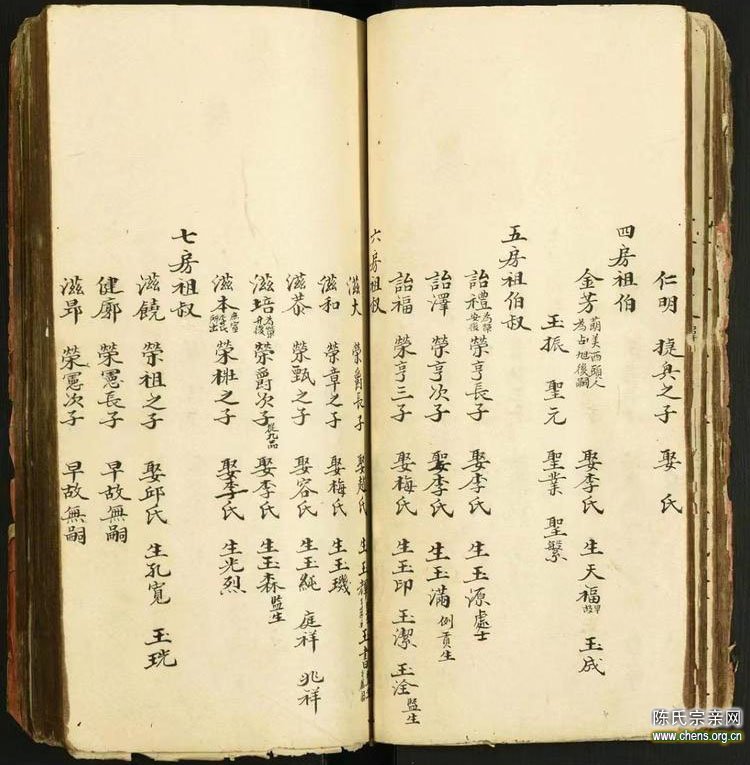 仁明 捷兵之子 娶 氏
四房祖伯
金芳 萌美西頭人 為占旭後嗣 娶李氏 生天福 早故 玉成
玉振 聖元 聖業 聖繁
五房祖伯叔
詒禮 榮亨長子 娶李氏 生玉源 處士
詒澤 榮亨次子 娶李氏 生玉滿 例貢生
詒福 榮亨三子 娶梅氏 生玉印 玉潔 玉淦 監生
六房祖叔
滋大 榮爵長子 娶趙氏 生玉
滋和 榮章之子 娶梅氏 生玉璣
滋恭 榮甄之子 娶容氏 生玉純 庭祥 兆祥
滋培 榮爵次子 從九品 娶李氏 生玉森 監生
滋本 榮桃之子 娶李氏 生光烈
七房祖叔
滋饒 榮祖之子 娶邱氏 生孔寬 玉珖
健廓 榮憲長子 早故無嗣
滋昻 榮憲次子 早故無嗣
陈氏宗亲网
www.chens.org.cn